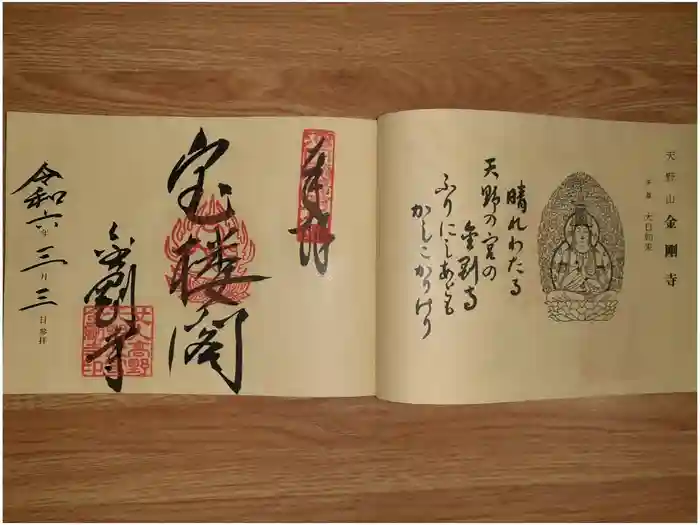 天野山 金剛寺
本尊 大日如来
晴れわたる
天野の宮の
金剛寺
ふりにしあとも
かしこかりけり
奉拝
宝楼閣
金剛寺
令和六年三月三日参拝